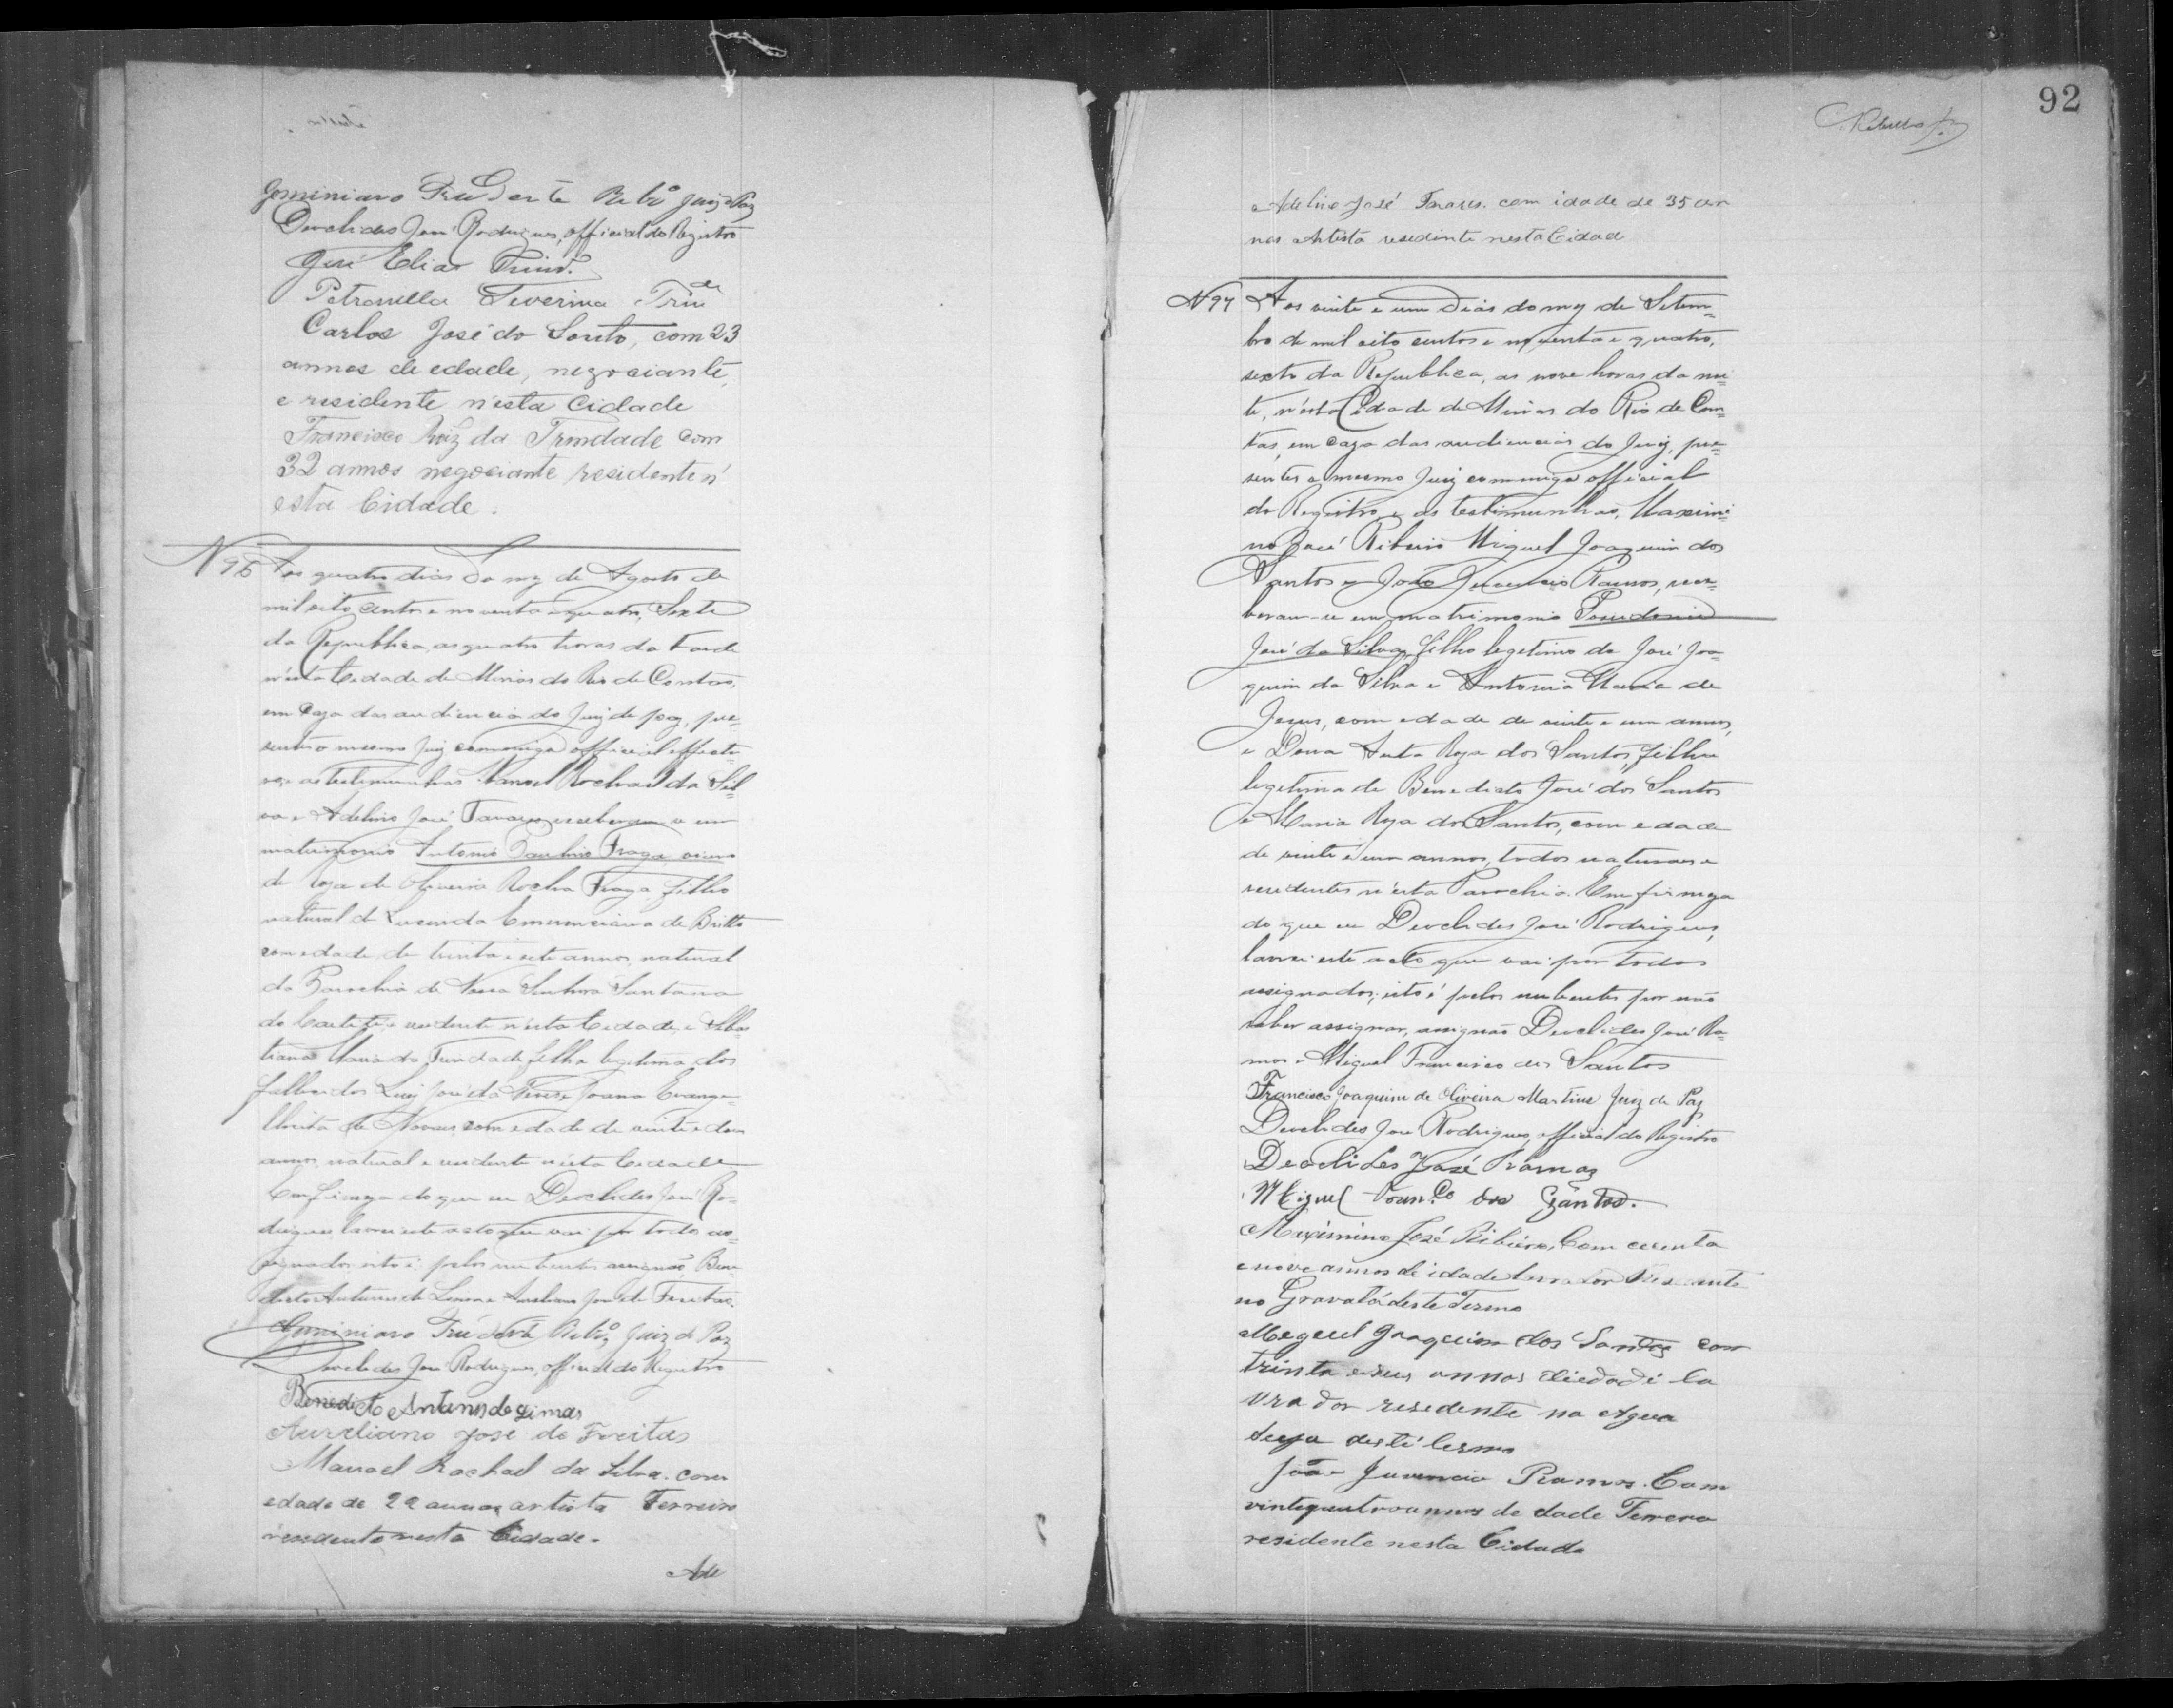 Geminiano Prudente Rib.o Juiz de Paz
Deoclides José Rodrigues, official do Registro
José Elias Trind.
Petronilla Severina Trin.de
Carlos José do Souto, com 23
annos de edade, negociante,
e residente n'esta Cidade
Francisco Luiz da Trindade com
32 annos negociante residente n'
esta Cidade.
N 96 Aos quatro dias do mez de Agosto de
mil oito centos e noventa e quatro, Sexto
da Republica, as quatro horas da tarde
n'esta Cidade de Minas do Rio de Contas,
em Caza das audiencia do Juiz de paz, pre-
sente o mesmo Juiz commigo official effecti-
vo, e as testimunhas Manoel Rachael da Sil-
va e Adelino José Tavares receberam-se em
matrimonio Antonio Paulino Fraga viuvo
de Roza de Oliveira Rocha Fraga, filho
natural de Lucinda Emerenciana de Britto
com edade de trinta e sete annos, natural
da Parochia de Nossa Senhora Santana
do Caetité, e residente n'esta Cidade, e Sebas-
tiana Maria da Trindade filha legitima dos
fallecidos Luiz José da e Joana Evange-
lhista de Novaes, com edade de vinte e dois
annos, natural e residente n'esta Cidade
Em firmeza do que eu Deoclides José Ro-
drigues lavrei este acto que vai por todos as-
signados, isto é, pelos nubentes assignão Bene-
dicto Antunes de Lima e Aureliano José de Freitas.
Geminiano Prudente Rib.o Juiz de Paz
Deoclides José Rodrigues, official do Registro
Benedicto Antunes de Limas
Aureliano José de Freitas
Manoel Rachael da Silva. com
edade de 22 annos artista Ferreiro
residente nesta Cidade.
Ade
92
Adelino José Tavares. com idade de 35 an
nos Artista resedinte nesta Cidade
N 97 Aos vinte e um dias do mez de Setem-
bro de mil oito centos e noventa e quatro,
sexto da Republica, as nove horas da noi-
te, n'esta Cidade de Minas do Rio de Con-
tas, em Caza das audiencias do Juiz, pre-
sentes o mesmo Juiz commigo official
do Registro, e as testimunhas, Maximi-
no José Ribeiro Miguel Joaquim dos
Santos e João Juvencio Ramos, rece-
beram-se em matrimonio Possidonio
José da Silva, filho legitimo de José Joa-
quim da Silva e Antonia Maria de
Jesus, com edade de vinte e um annos,
e Dona Anta Roza dos Santos, filha
legitima de Benedicto José dos Santos
e Maria Roza dos Santos, com edade
de vinte e um annos, todos naturaes e
residentes n'esta Parochia. Em firmeza
do que eu Deoclides José Rodrigues,
lavrei este acto que vai por todos
assignados; isto é pelos nubentes por não
saber assignar, assignão Deoclides José Ra-
mos e Miguel Francisco dos Santos
Francisco Joaquim de Oliveira Martins Juiz de Paz
Deoclides José Rodrigues, official do Registro
Deoclides José Ramos
Miguel Fran.co dos Santos.
Maximino José Ribeiro, Com corenta
e nove annos de idade lavrador Residente
no Gravatá deste Termo
Meguel Joaquim dos Santos com
trinta e seis annos diedade la
vrador resedente na Agua
Suja deste termo
João Juvencio Ramos. Com
vintequatroannos de dade Ferrero
residente nesta Cidade